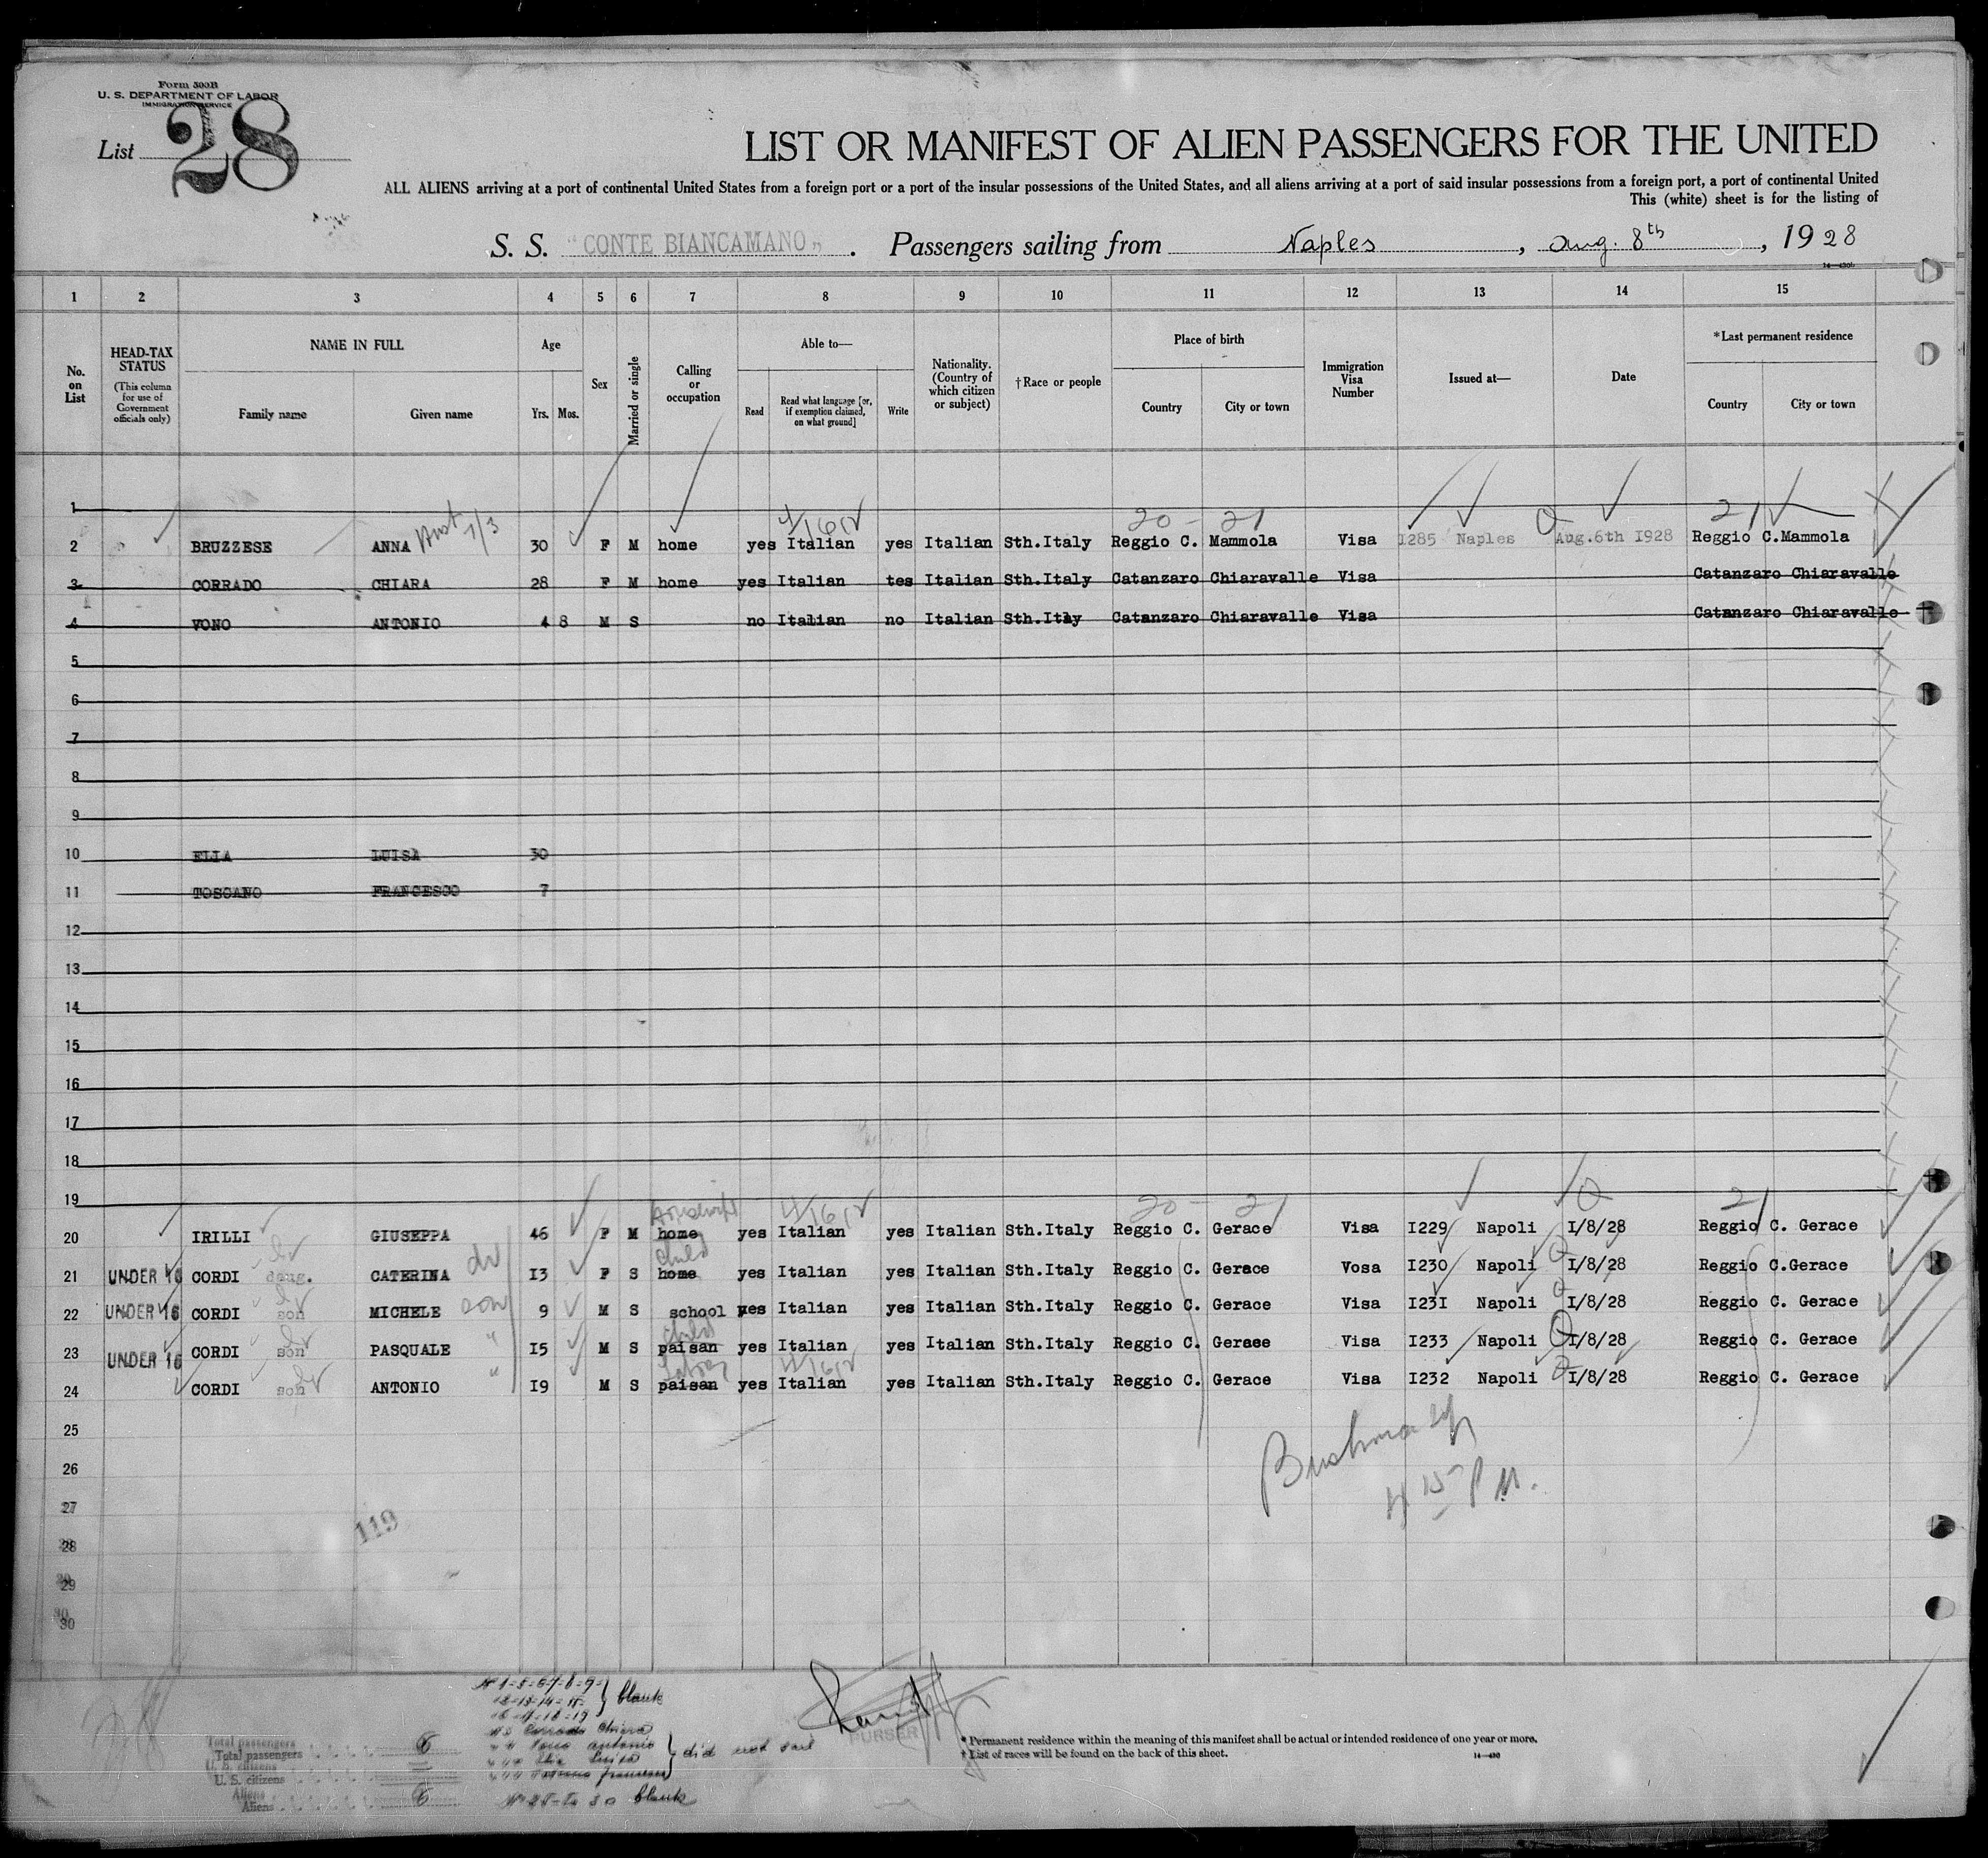 Form 500B
U. S. DEPARTMENT OF LABOR
IMMIGRATION SERVICE
List 28
LIST OR MANIFEST OF ALIEN PASSENGERS FOR THE UNITED
ALL ALIENS arriving at a port of continental United States from a foreign port or a port of the insular possessions of the United States, and all aliens arriving at a port of said insular possessions from a foreign port, a port of continental United
This (white) sheet is for the listing of
S. S. "CONTE BIANCAMANO". Passengers sailing from Naples, aug. 8th, 1928
1 2 3 4 5 6 7 8 9 10 11 12 13 14 15
No. on List
HEAD-TAX STATUS (This column for use of Government officials only)
NAME IN FULL Family name Given name
Age Yrs. Mos.
Sex
Married or single
Calling or occupation
Able to— Read Read what language [or, if exemption claimed, on what ground] Write
Nationality. (Country of which citizen or subject)
†Race or people
Place of birth Country City or town
Immigration Visa Number
Issued at—
Date
*Last permanent residence Country City or town
1
4/1612 20 - 21 21
2 BRUZZESE ANNA 1/3 30 F M home yes Italian yes Italian Sth.Italy Reggio C. Mammola Visa I285 Naples Aug.6th I928 Reggio C.Mammola
3 CORRADO CHIARA 28 F M home yes Italian tes Italian Sth.Italy Catanzaro Chiaravalle Visa Catanzaro Chiaravalle
4 VONO ANTONIO 4 8 M S no Italian no Italian Sth.Itly Catanzaro Chiaravalle Visa Catanzaro Chiaravalle
5
6
7
8
9
10 ELIA LUISA 30
11 TOSCANO FRANCESCO 7
12
13
14
15
16
17
18
19
4/1612 20 - 21 21
20 IRILLI GIUSEPPA 46 F M home yes Italian yes Italian Sth.Italy Reggio C. Gerace Visa I229 Napoli I/8/28 Reggio C. Gerace
child
21 UNDER 16 CORDI daug. CATERINA I3 F S home yes Italian yes Italian Sth.Italy Reggio C. Gerace Vosa I230 Napoli I/8/28 Reggio C.Gerace
22 UNDER 16 CORDI son MICHELE son 9 M S school yes Italian yes Italian Sth.Italy Reggio C. Gerace Visa I23I Napoli I/8/28 Reggio C. Gerace
child
23 UNDER 16 CORDI son PASQUALE " I5 M S paisan yes Italian yes Italian Sth.Italy Reggio C. Gerace Visa I233 Napoli I/8/28 Reggio C. Gerace
4/1612
24 CORDI son ANTONIO " I9 M S paisan yes Italian yes Italian Sth.Italy Reggio C. Gerace Visa I232 Napoli I/8/28 Reggio C. Gerace
25
26
4 15 P M.
27
119
28
29
30
blank
Corrado Chiara
Vono Antonio
Elia Luisa
Toscano Francesco
did not sail
No 25 to 30 blank
Total passengers 6
U. S. citizens
Aliens 6
PURSER
* Permanent residence within the meaning of this manifest shall be actual or intended residence of one year or more.
† List of races will be found on the back of this sheet.
14—430